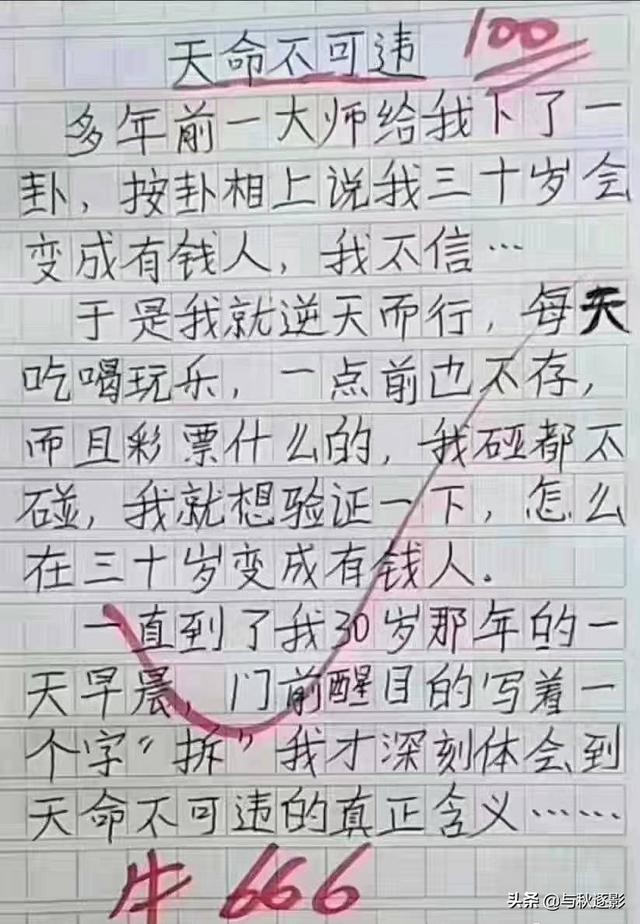 天命不可违
100
多年前一大师给我下了一
卦，按卦相上说我三十岁会
变成有钱人，我不信…
于是我就逆天而行，每天
吃喝玩乐，一点前也不存，
而且彩票什么的，我碰都不
碰，我就想验证一下，怎么
在三十岁变成有钱人.
一直到了我30岁那年的一
天早晨，门前醒目的写着一
个字“拆”我才深刻体会到
天命不可违的真正含义……
牛 666
头条 @与秋逐影